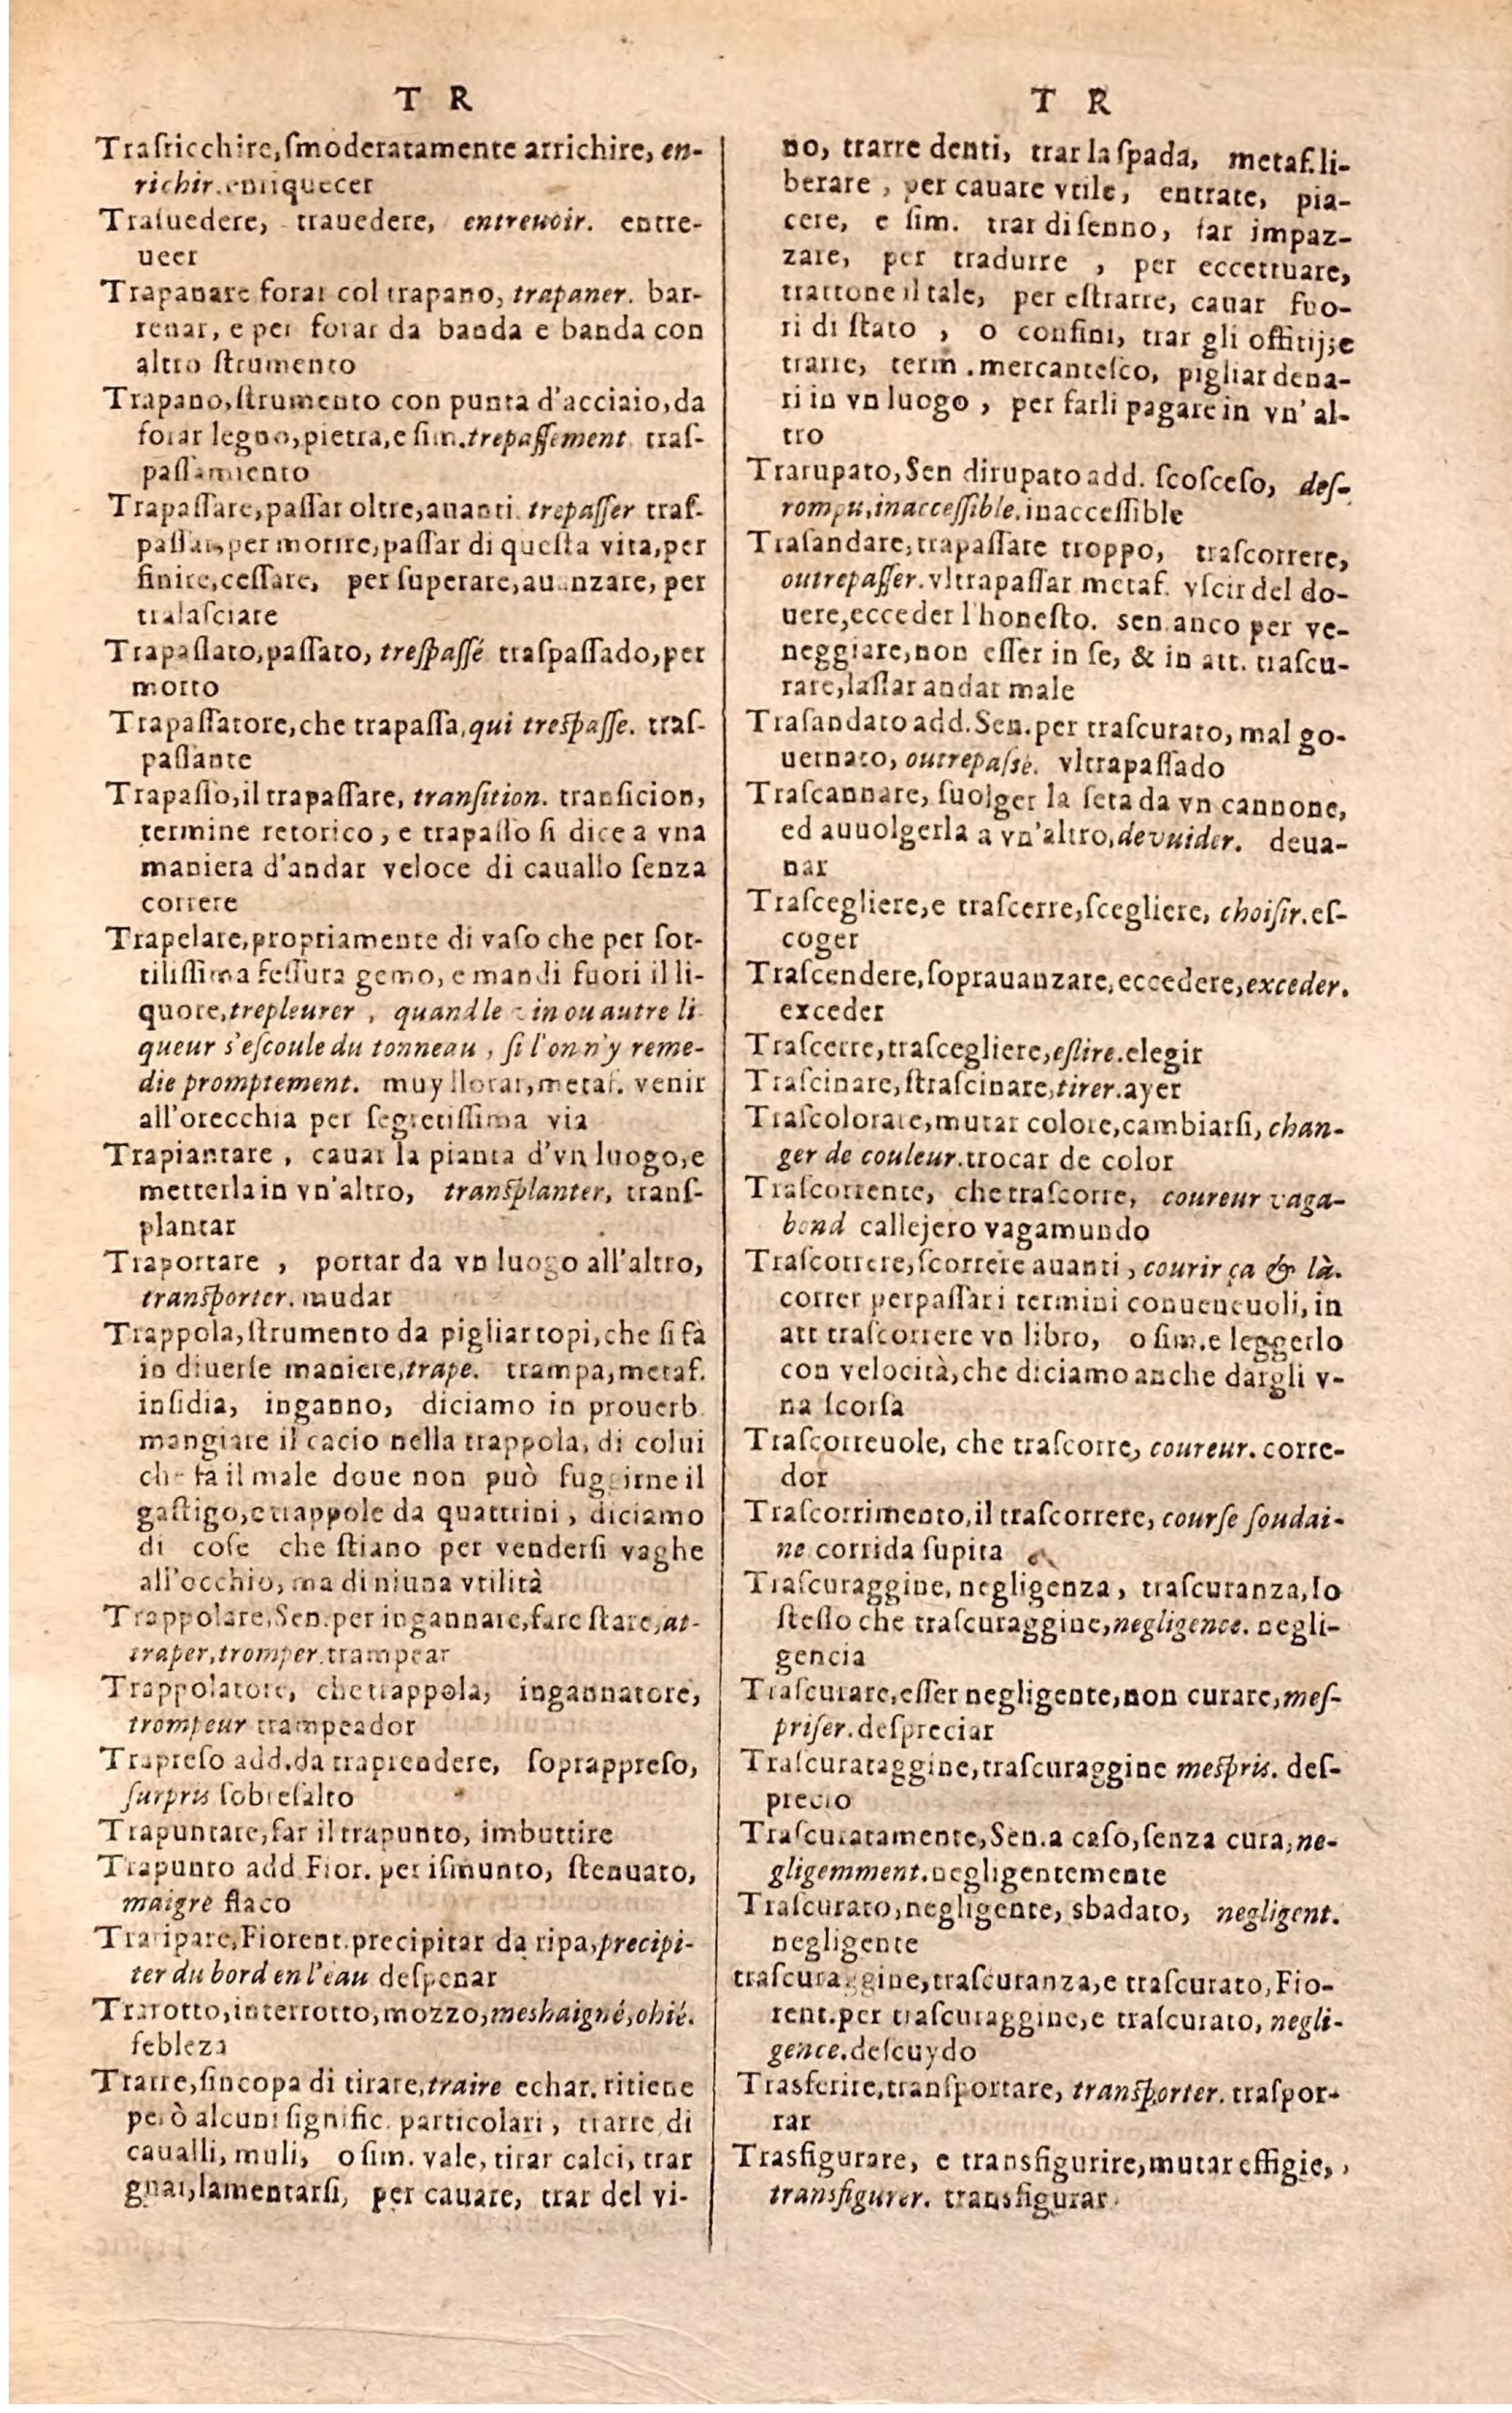 T R
Traſricchire, ſmoderatamente arrichire, en-
richir. enriquecer
Traſuedere, trauedere, entreuoir. entre-
ueer
Trapanare forar col trapano, trapaner. bar-
renar, e per forar da banda e banda con
altro ſtrumento
Trapano, ſtrumento con punta d'acciaio, da
forar legno, pietra, e ſim. trepaſſement traſ-
paſſamiento
Trapaſſare, paſſar oltre, auanti. trepaſſer traſ-
paſſar, per morire, paſſar di queſta vita, per
finire, ceſſare, per ſuperare, auanzare, per
tralaſciare
Trapaſſato, paſſato, treſpaſſé traſpaſſado, per
morto
Trapaſſatore, che trapaſſa, qui treſpaſſe. traſ-
paſſante
Trapaſſo, il trapaſſare, tranſition. tranſicion,
termine retorico, e trapaſſo ſi dice a vna
maniera d'andar veloce di cauallo ſenza
correre
Trapelare, propriamente di vaſo che per ſot-
tiliſſima feſſura gemo, e mandi fuori il li-
quore, trepleurer, quand le vin ou autre li
queur s'eſcoule du tonneau, ſi l'on n'y reme-
die promptement. muy llorar, metaf. venir
all'orecchia per ſegretiſſima via
Trapiantare, cauar la pianta d'vn luogo, e
metterla in vn'altro, tranſplanter, tranſ-
plantar
Traportare, portar da vn luogo all'altro,
tranſporter. mudar
Trappola, ſtrumento da pigliar topi, che ſi fà
in diuerſe maniere, trape. trampa, metaf.
inſidia, inganno, diciamo in prouerb.
mangiare il cacio nella trappola, di colui
che fa il male doue non può fuggirne il
gaſtigo, e trappole da quattrini, diciamo
di coſe che ſtiano per venderſi vaghe
all'occhio, ma di niuna vtilità
Trappolare, Sen. per ingannare, fare ſtare, at-
traper, tromper. trampear
Trappolatore, che trappola, ingannatore,
trompeur trampeador
Trapreſo add. da traprendere, ſoprappreſo,
ſurpris ſobreſalto
Trapuntare, far il trapunto, imbuttire
Trapunto add Fior. per iſmunto, ſtenuato,
maigre flaco
Traripare, Fiorent. precipitar da ripa, precipi-
ter du bord en l'eau deſpenar
Trarotto, interrotto, mozzo, meshaigné, ohié.
febleza
Trarre, ſincopa di tirare, traire echar. ritiene
però alcuni ſignific. particolari, trarre di
caualli, muli, o ſim. vale, tirar calci, trar
guai, lamentarſi, per cauare, trar del vi-
T R
no, trarre denti, trar la ſpada, metaf. li-
berare, per cauare vtile, entrate, pia-
cere, e ſim. trar di ſenno, far impaz-
zare, per tradurre, per eccettuare,
trattone il tale, per eſtrarre, cauar fuo-
ri di ſtato, o confini, trar gli offitij; e
trarre, term. mercanteſco, pigliar dena-
ri in vn luogo, per farli pagare in vn'al-
tro
Trarupato, Sen dirupato add. ſcoſceſo, deſ-
rompu, inacceſſible. inacceſſible
Traſandare, trapaſſare troppo, traſcorrere,
outrepaſſer. vltrapaſſar metaf. vſcir del do-
uere, ecceder l'honeſto. sen. anco per ve-
neggiare, non eſſer in ſe, & in att. traſcu-
rare, laſſar andar male
Traſandato add. Sen. per traſcurato, mal go-
uernato, outrepaſsé. vltrapaſſado
Traſcannare, ſuolger la ſeta da vn cannone,
ed auuolgerla a vn'altro, devuider. deua-
nar
Traſcegliere, e traſcerre, ſcegliere, choiſir. eſ-
coger
Traſcendere, ſoprauanzare, eccedere, exceder.
exceder
Traſcerre, traſcegliere, eſlire. elegir
Traſcinare, ſtraſcinare, tirer. ayer
Traſcolorare, mutar colore, cambiarſi, chan-
ger de couleur. trocar de color
Traſcorrente, che traſcorre, coureur vaga-
bond callejero vagamundo
Traſcorrere, ſcorrere auanti, courir ça & là.
correr perpaſſar i termini conueneuoli, in
att traſcorrere vn libro, o ſim. e leggerlo
con velocità, che diciamo anche dargli v-
na ſcorſa
Traſcorreuole, che traſcorre, coureur. corre-
dor
Traſcorrimento, il traſcorrere, courſe ſoudai-
ne corrida ſupita
Traſcuraggine, negligenza, traſcuranza, lo
ſteſſo che traſcuraggine, negligence. negli-
gencia
Traſcurare, eſſer negligente, non curare, meſ-
priſer. deſpreciar
Traſcurataggine, traſcuraggine meſpris. deſ-
precio
Traſcuratamente, Sen. a caſo, ſenza cura, ne-
gligemment. negligentemente
Traſcurato, negligente, sbadato, negligent.
negligente
traſcuraggine, traſcuranza, e traſcurato, Fio-
rent. per traſcuraggine, e traſcurato, negli-
gence. deſcuydo
Trasferire, tranſportare, tranſporter. traſpor-
rar
Trasfigurare, e transfigurire, mutar effigie,,
transfigurer. transfigurar